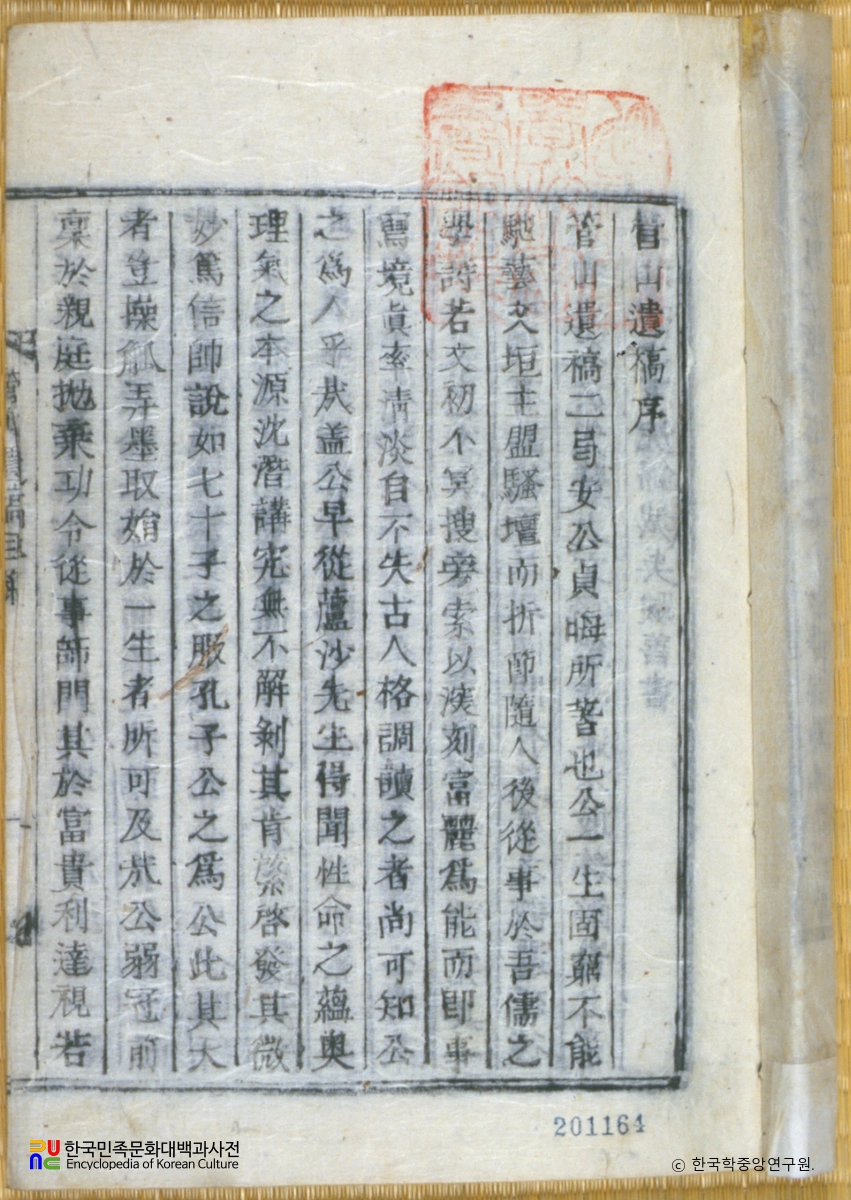 管山遺稿序
管山遺稿二局安公貞晦所著也公一生固窮不能
馳藝文垣主盟騷壇而折節隨人後從事於吾儒之
學詩若文初不冥搜旁索以淡刻富麗爲能而卽事
寫境眞率淸淡自不失古人格調讀之者尚可知公
之爲人乎哉盖公早從蘆沙先生得聞性命之蘊奧
理氣之本源沈潛講究無不解剝其肯綮啓發其微
妙篤信師說如七十子之服孔子公之爲公此其大
者豈操觚弄墨取媚於一生者所可及哉公弱冠前
稟於親庭抛棄功令從事師門其於富貴利達視若
201164
한국민족문화대백과사전
Encyclopedia of Korean Culture
© 한국학중앙연구원.